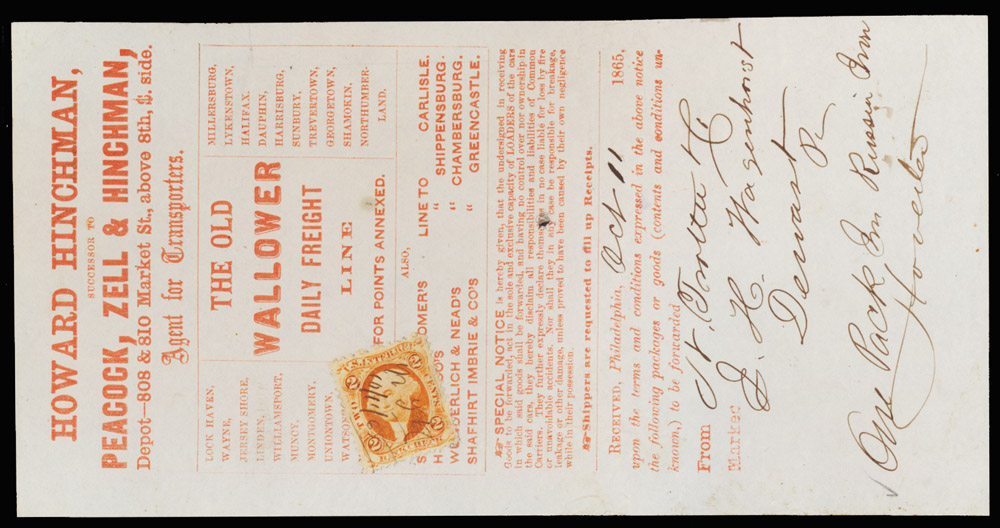 HOWARD HINCHMAN,
SUCCESSOR TO
PEACOCK, ZELL & HINCHMAN,
Depot—808 & 810 Market St., above 8th, S. side.
Agent for Transporters.
LOCK HAVEN,
WAYNE,
JERSEY SHORE,
LINDEN,
WILLIAMSPORT,
MUNCY,
MONTGOMERY,
UNIONTOWN,
WATSON
THE OLD
WALLOWER
DAILY FREIGHT
LINE
FOR POINTS ANNEXED.
MILLERSBURG,
LYKENSTOWN,
HALIFAX,
DAUPHIN,
HARRISBURG,
SUNBURY,
TREVERTOWN,
GEORGETOWN,
SHAMOKIN,
NORTHUMBER-
LAND.
ALSO,
LINE TO CARLISLE.
" SHIPPENSBURG.
WUNDERLICH & NEAD'S " CHAMBERSBURG,
SHAFHIRT IMBRIE & CO'S " GREENCASTLE.
U.S. INTER. REV.
2 2
TWO CENTS
BANK CHECK
☞ SPECIAL NOTICE is hereby given, that the undersigned in receiving
Goods to be forwarded, act in the sole and exclusive capacity of LOADERS of the cars
in which said goods shall be forwarded, and having no control over nor ownership in
the said cars, they hereby disclaim all responsibilities and liabilities of Common
Carriers. They further expressly declare themselves in no case liable for loss by fire
or unavoidable accidents. Nor shall they in any case be responsible for breakage,
leakage or other damage, unless proved to have been caused by their own negligence
while in their possession.
☞ Shippers are requested to fill up Receipts.
RECEIVED, Philadelphia, Oct 11 1865,
upon the terms and conditions expressed in the above notice
the following packages or goods (contents and conditions un-
known,) to be forwarded
From N. Trotter & Co
Marked D. H. Wagenhorst
Dewart
Pa
One Pack Em Russia Iron